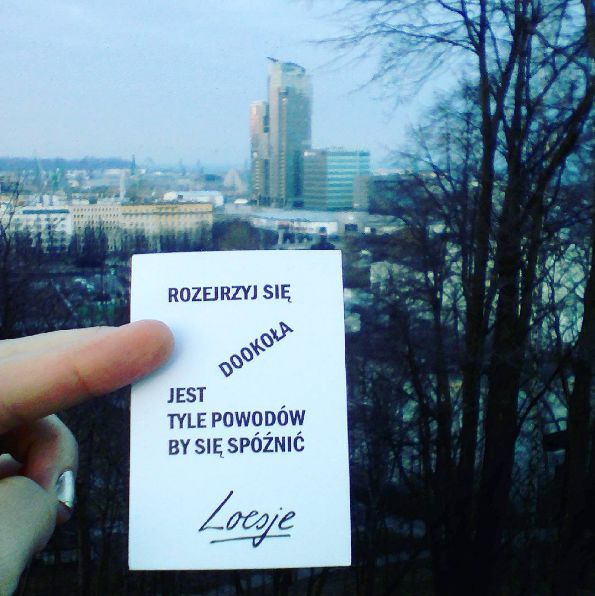 ROZEJRZYJ SIĘ
DOOKOŁA
JEST
TYLE POWODÓW
BY SIĘ SPÓŹNIĆ
Loesje